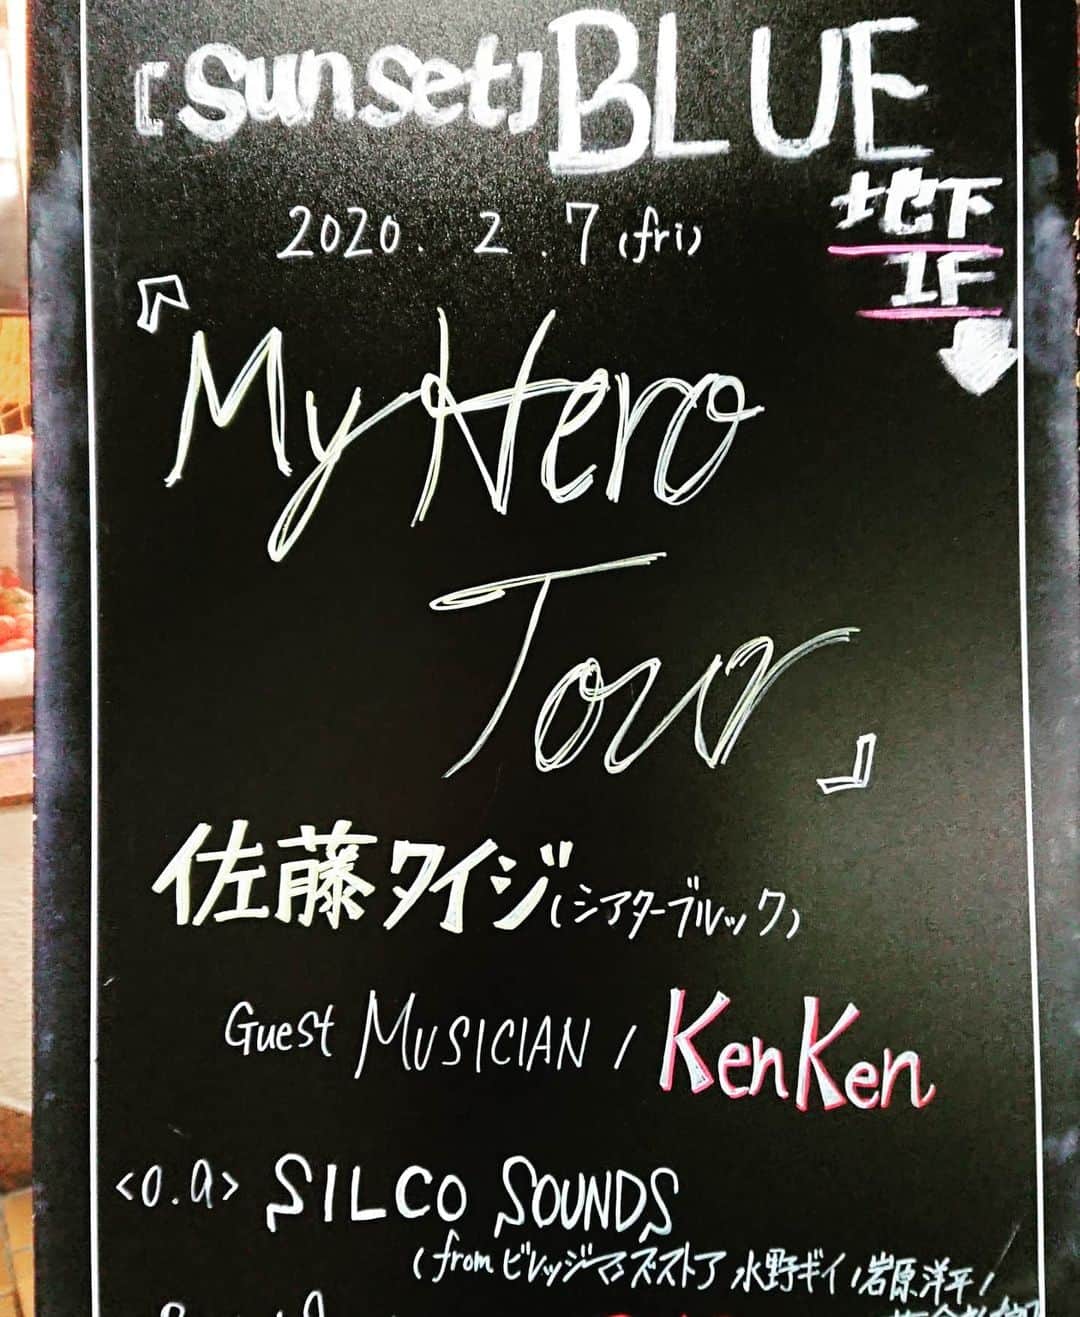 [sunset] BLUE
地下
1F
2020. 2. 7 (fri)
『My Hero
Tour』
佐藤タイジ (シアターブルック)
Guest MUSICIAN / KenKen
<O.A> SILCO SOUNDS
(from ビレッジマンズストア 水野ギイ / 岩原洋平 /